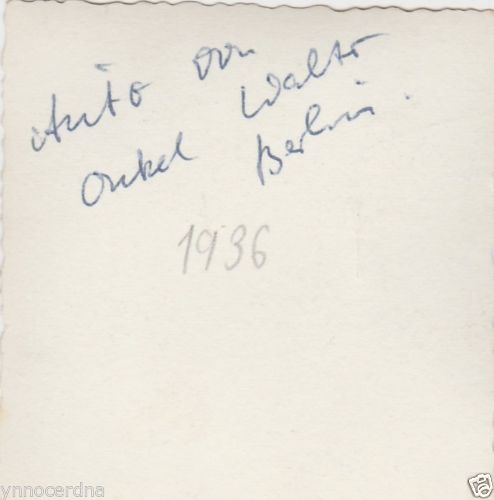 Auto von
Onkel Walter
Berlin.
1936
ynnocerdna